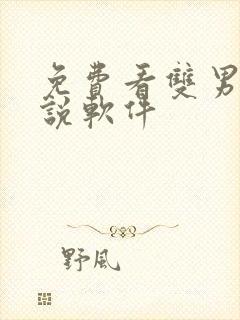 免費看雙男
說軟件
野風